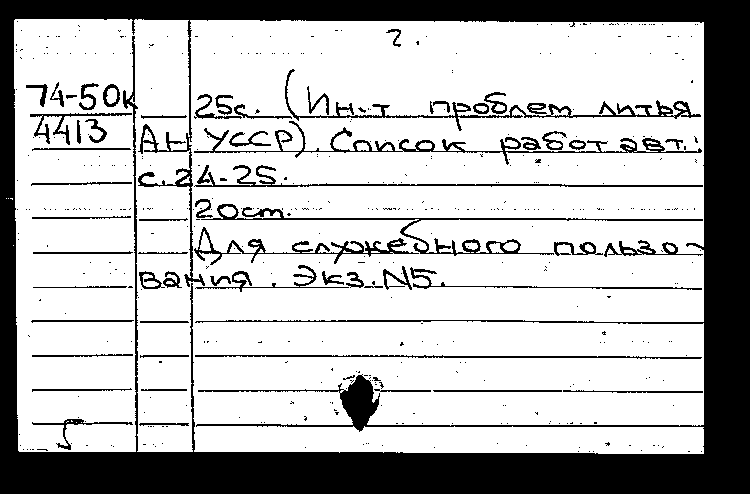 2.
74-50к 25с. (Ин-т проблем литья
4413 АН УССР). Список работ авт.:
с.24-25.
20см.
Для служебного пользо-
вания. Экз.N5.